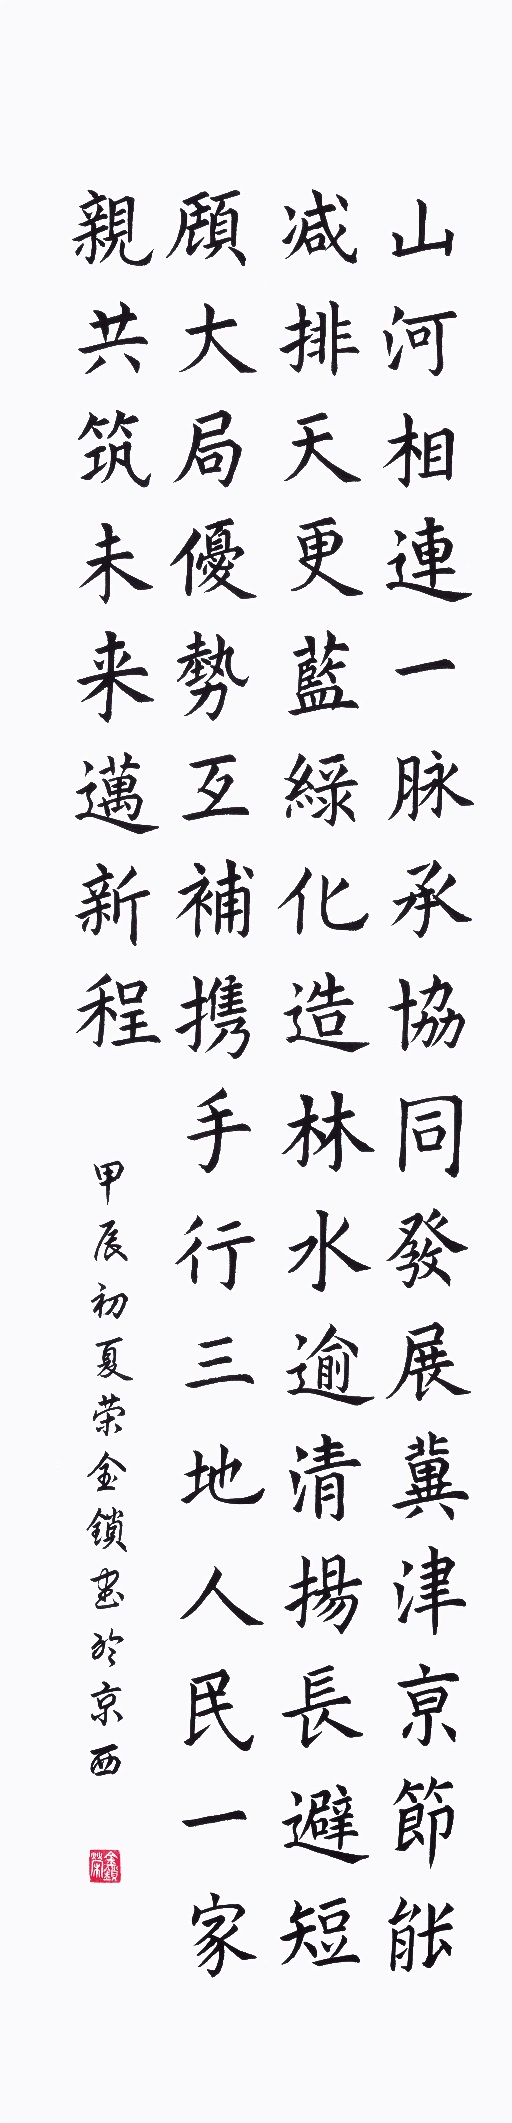 山河相連一脉承協同發展冀津京節能
减排天更藍綠化造林水逾清揚長避短
顧大局優勢互補携手行三地人民一家
親共筑未来邁新程
甲辰初夏荣金鎖书於京西